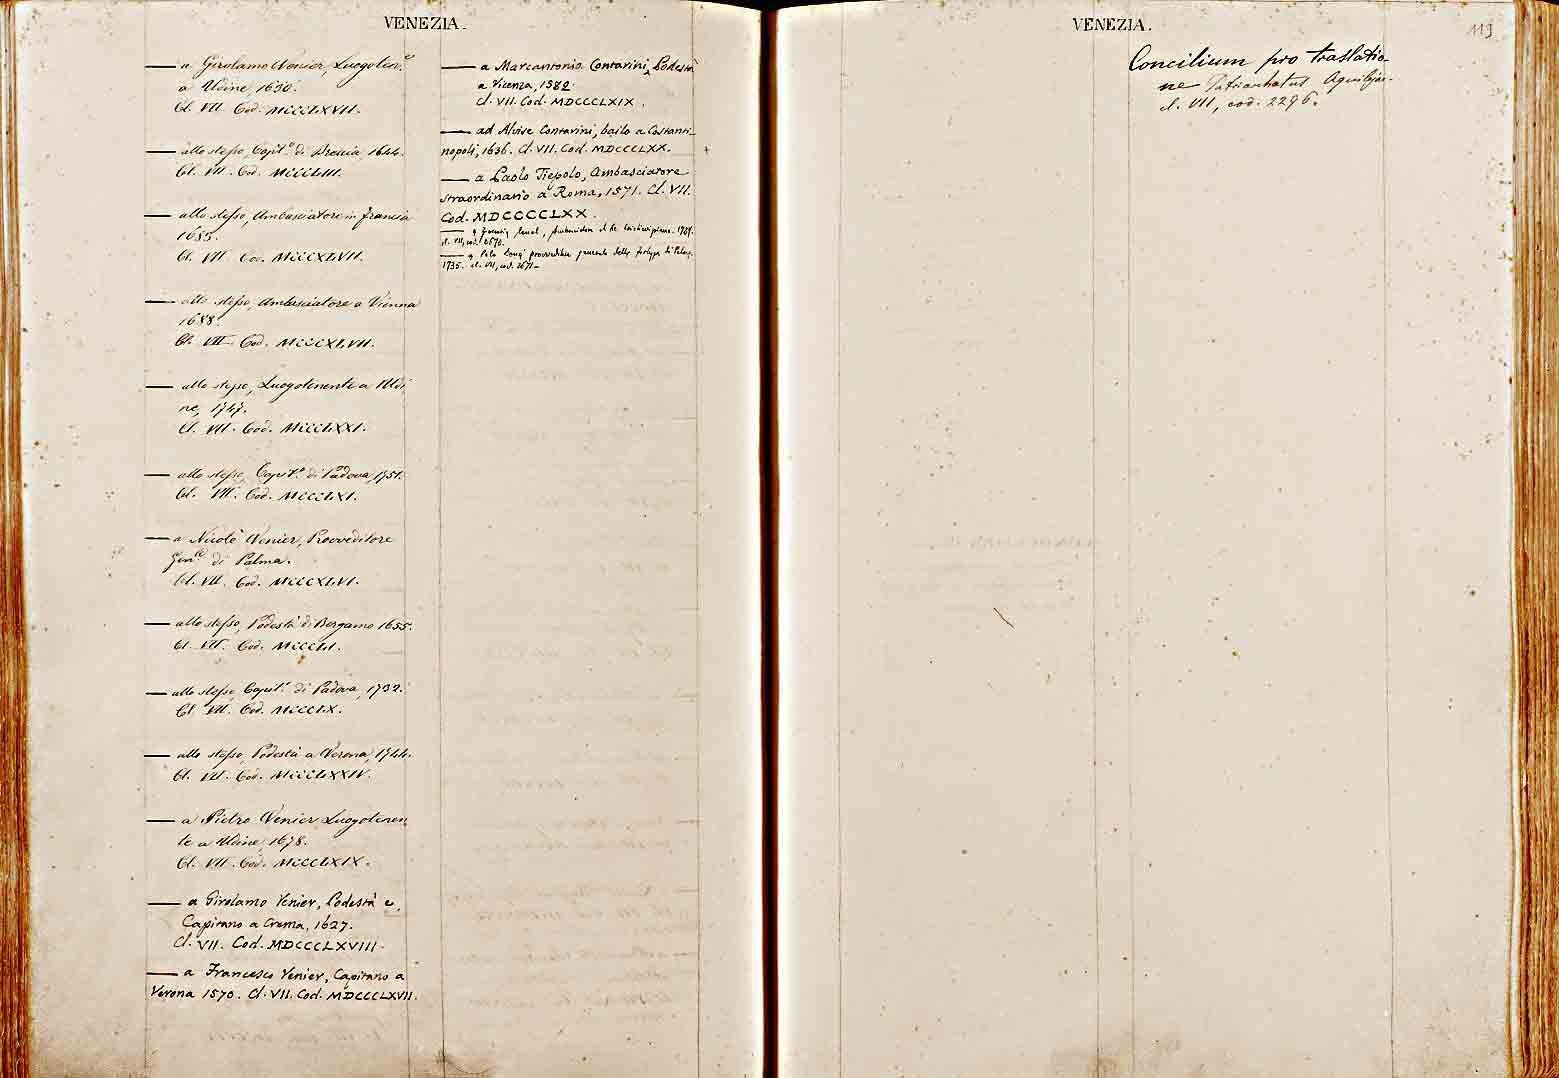 VENEZIA.
— a Girolamo Venier, Luogoten.e
a Udine 1630.
Cl. VII. Cod. MCCCLXVII.
— allo stesso, Capit.o di Brescia 1644.
Cl. VII. Cod. MCCCLIII.
— allo stesso, Ambasciatore in Francia
1685.
Cl. VII Cod. MCCCXLVII.
— allo stesso, Ambasciatore a Vienna
1688.
Cl. VII. Cod. MCCCXLVII.
— allo stesso, Luogotenente a Udi
ne, 1747.
Cl. VII. Cod. MCCCLXXI.
— allo stesso, Capit.o di Padova, 1751.
Cl. VII. Cod. MCCCLXI.
— a Nicolò Venier, Provveditore
Gen.le di Palma.
Cl. VII. Cod. MCCCXLVI.
— allo stesso, Podestà di Bergamo 1655.
Cl. VII. Cod. MCCCLI.
— allo stesso, Capit.o di Padova, 1732.
Cl. VII. Cod. MCCCLX.
— allo stesso, Podestà a Verona, 1744.
Cl. VII. Cod. MCCCLXXIV.
— a Pietro Venier Luogotenen
te a Udine, 1678.
Cl. VII. Cod. MCCCLXIX.
— a Girolamo Venier, Podestà e
Capitano a Crema, 1627.
Cl. VII. Cod. MDCCCLXVIII.
— a Francesco Venier, Capitano a
Verona 1570. Cl. VII. Cod. MDCCCLXVII.
— a Marcantonio Contarini, Podestà
a Vicenza, 1582.
Cl. VII. Cod. MDCCCLXIX.
— ad Alvise Contarini, bailo a Costanti-
nopoli, 1636. Cl. VII. Cod. MDCCCLXX.
— a Paolo Tiepolo, Ambasciatore
straordinario a Roma, 1571. Cl. VII.
Cod. MDCCCCCLXX.
cl. VII, cod. 2670.
— a Polo provveditor generale della fortezza di Palma,
1735. cl. VII, cod. 2671 –
VENEZIA.
119
Concilium pro traslatio
ne Patriarchatus Aquilejae.
cl. VII, cod. 2296.